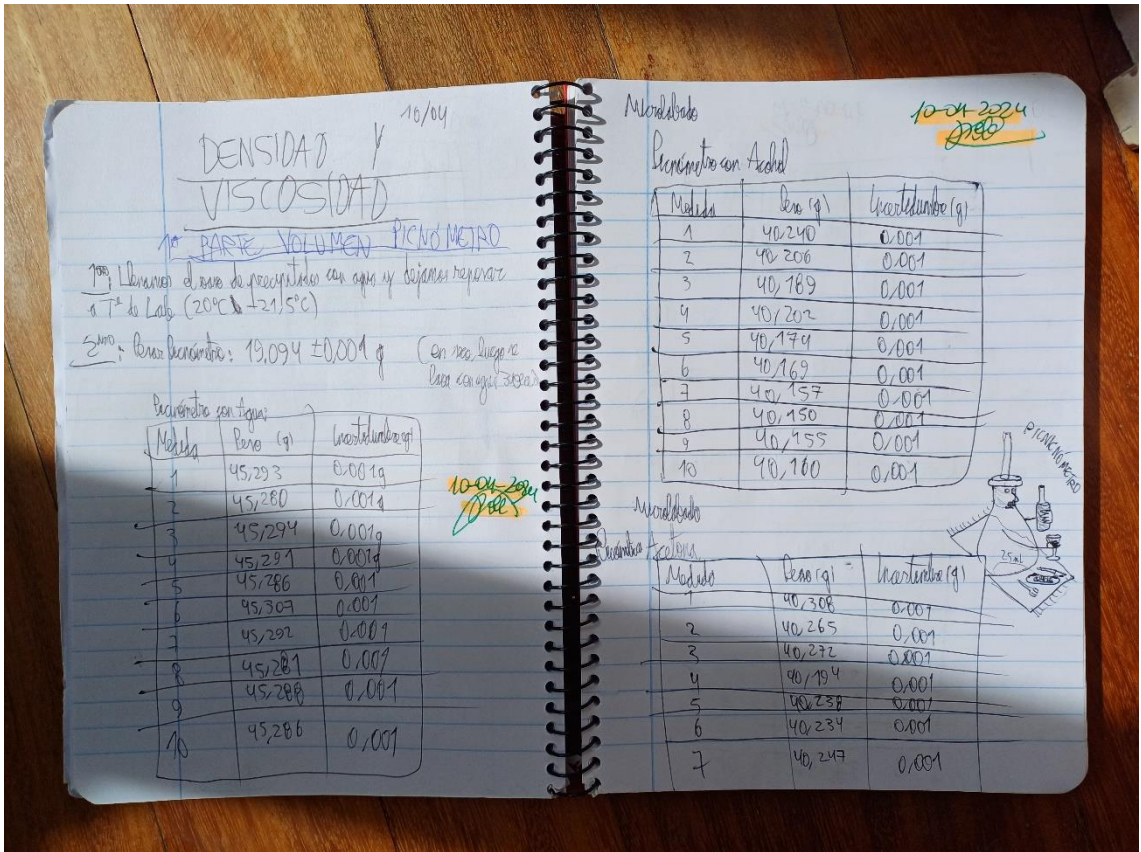 10/04
DENSIDAD Y
VISCOSIDAD
1ª PARTE VOLUMEN PICNÓMETRO
1ero: Llenamos el vaso de precipitados con agua y dejamos reposar
a Tª de Lab (20ºC -21,5ºC)
2ndo: Pesar Picnómetro: 19,094 ±0,001 g (en seco, luego se
lava con agua
Picnómetro con Agua:
Medida Peso (g) Incertidumbre (g)
1 45,293 0.001g
2 45,280 0.001g
3 45,294 0.001g
4 45,291 0.001g
5 45,286 0,001
6 45,307 0.001
7 45,292 0.001
8 45,281 0.001
9 45,288 0,001
10 45,286 0,001
10-04-2024
Microlabado
Picnómetro con Alcohol
10-04-2024
Medida Peso (g) Incertidumbre (g)
1 40,240 0.001
2 40,206 0.001
3 40,189 0,001
4 40,202 0,001
5 40,174 0,001
6 40,169 0,001
7 40,157 0,001
8 40,150 0,001
9 40,155 0,001
10 40,160 0,001
PICNICNÓMETRO
25mL
Microlabado
Picnómetro Acetona
Medida Peso (g) Incertidumbre (g)
1 40,308 0,001
2 40,265 0,001
3 40,272 0,001
4 40,194 0,001
5 40,238 0,001
6 40,234 0,001
7 40,247 0,001